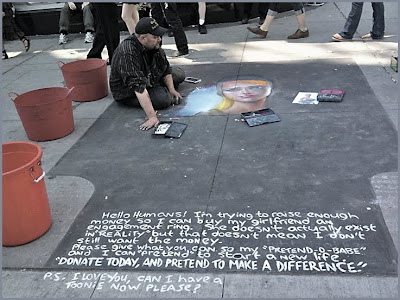 Hello Humans! I'm trying to raise enough
money so I can buy my girlfriend an
engagement ring. She doesn't actually exist
in "REALITY" but that doesn't mean I don't
still want the money.
Please give what you can so my "PRETEND-O-BABE"
and I can "pretend" to start a new life.
"DONATE TODAY, AND PRETEND TO MAKE A DIFFERENCE."
P.S. I LOVE YOU, CAN I have a
TOONIE NOW PLEASE?